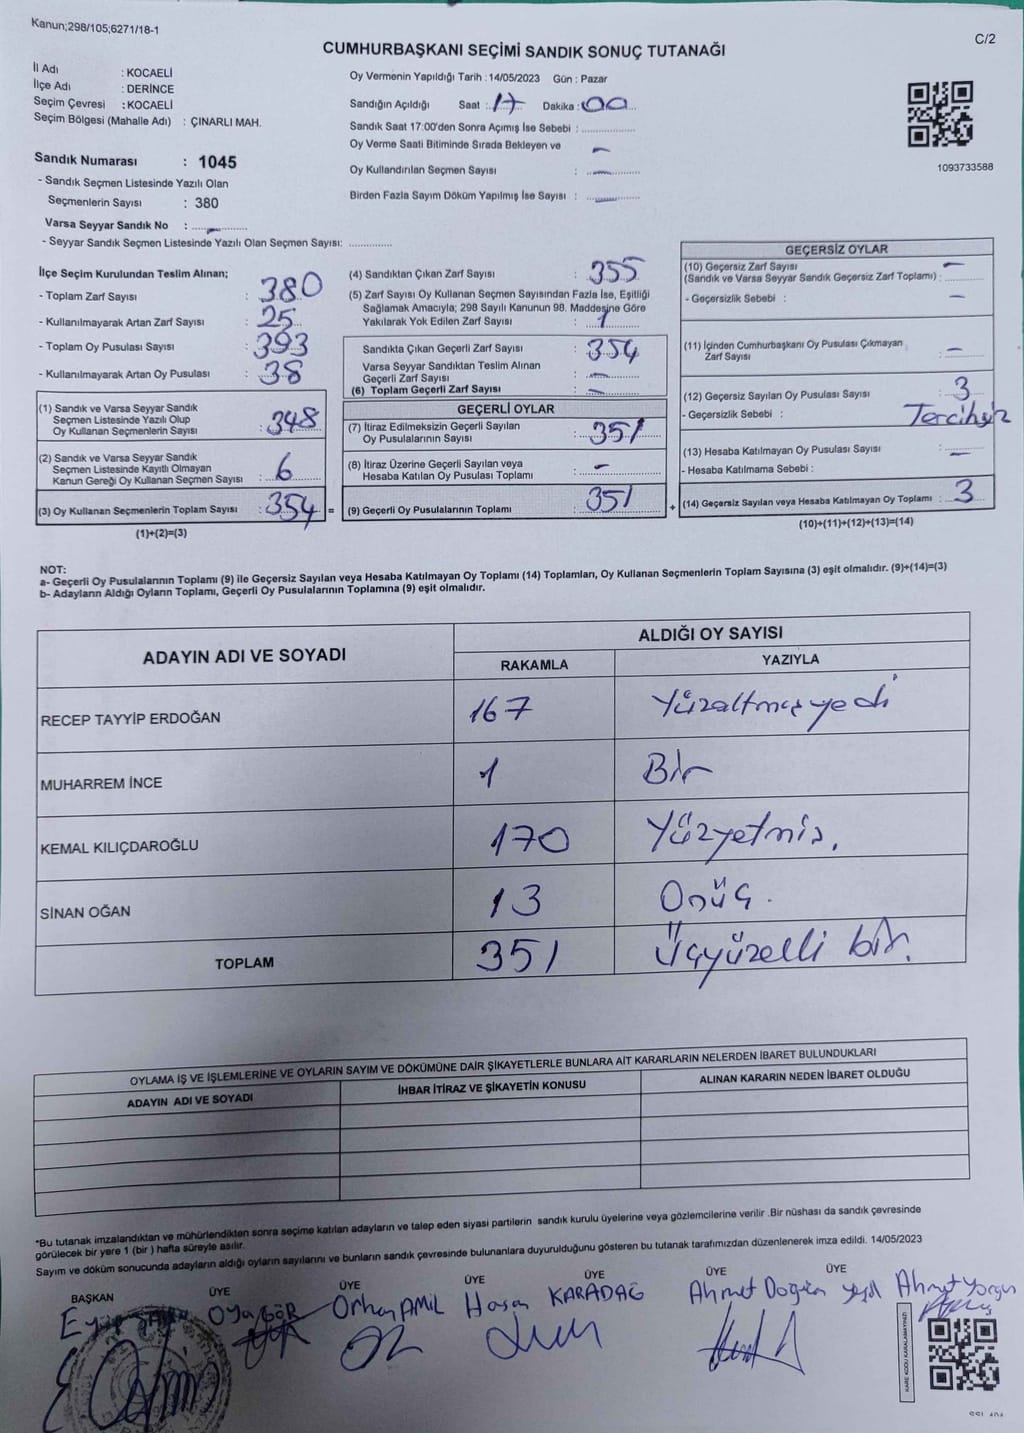 Kanun;298/105;6271/18-1
C/2
CUMHURBAŞKANI SEÇİMİ SANDIK SONUÇ TUTANAĞI
İl Adı : KOCAELİ
İlçe Adı : DERİNCE
Seçim Çevresi : KOCAELİ
Seçim Bölgesi (Mahalle Adı) : ÇINARLI MAH.
Sandık Numarası : 1045
- Sandık Seçmen Listesinde Yazılı Olan
Seçmenlerin Sayısı : 380
Varsa Seyyar Sandık No : -
- Seyyar Sandık Seçmen Listesinde Yazılı Olan Seçmen Sayısı: ............
Oy Vermenin Yapıldığı Tarih : 14/05/2023 Gün : Pazar
Sandığın Açıldığı Saat : 17 Dakika : 00
Sandık Saat 17:00'den Sonra Açımış İse Sebebi : ...............
Oy Verme Saati Bitiminde Sırada Bekleyen ve -
Oy Kullandırılan Seçmen Sayısı : -
Birden Fazla Sayım Döküm Yapılmış İse Sayısı : -
1093733588
İlçe Seçim Kurulundan Teslim Alınan;
- Toplam Zarf Sayısı : 380
- Kullanılmayarak Artan Zarf Sayısı : 25
- Toplam Oy Pusulası Sayısı : 393
- Kullanılmayarak Artan Oy Pusulası : 38
(1) Sandık ve Varsa Seyyar Sandık
Seçmen Listesinde Yazılı Olup
Oy Kullanan Seçmenlerin Sayısı : 348
(2) Sandık ve Varsa Seyyar Sandık
Seçmen Listesinde Kayıtlı Olmayan
Kanun Gereği Oy Kullanan Seçmen Sayısı : 6
(3) Oy Kullanan Seçmenlerin Toplam Sayısı : 354 =
(1)+(2)=(3)
(4) Sandıktan Çıkan Zarf Sayısı : 355
(5) Zarf Sayısı Oy Kullanan Seçmen Sayısından Fazla İse, Eşitliği
Sağlamak Amacıyla; 298 Sayılı Kanunun 98. Maddesine Göre
Yakılarak Yok Edilen Zarf Sayısı : 1
Sandıkta Çıkan Geçerli Zarf Sayısı : 354
Varsa Seyyar Sandıktan Teslim Alınan
Geçerli Zarf Sayısı : -
(6) Toplam Geçerli Zarf Sayısı : -
GEÇERLİ OYLAR
(7) İtiraz Edilmeksizin Geçerli Sayılan
Oy Pusulalarının Sayısı : 351
(8) İtiraz Üzerine Geçerli Sayılan veya
Hesaba Katılan Oy Pusulası Toplamı : -
(9) Geçerli Oy Pusulalarının Toplamı : 351 +
GEÇERSİZ OYLAR
(10) Geçersiz Zarf Sayısı -
(Sandık ve Varsa Seyyar Sandık Geçersiz Zarf Toplamı) : ............
- Geçersizlik Sebebi : -
(11) İçinden Cumhurbaşkanı Oy Pusulası Çıkmayan
Zarf Sayısı : -
(12) Geçersiz Sayılan Oy Pusulası Sayısı : 3
- Geçersizlik Sebebi : Tercihsiz
(13) Hesaba Katılmayan Oy Pusulası Sayısı : -
- Hesaba Katılmama Sebebi :
(14) Geçersiz Sayılan veya Hesaba Katılmayan Oy Toplamı : 3
(10)+(11)+(12)+(13)=(14)
NOT:
a- Geçerli Oy Pusulalarının Toplamı (9) ile Geçersiz Sayılan veya Hesaba Katılmayan Oy Toplamı (14) Toplamları, Oy Kullanan Seçmenlerin Toplam Sayısına (3) eşit olmalıdır. (9)+(14)=(3)
b- Adayların Aldığı Oyların Toplamı, Geçerli Oy Pusulalarının Toplamına (9) eşit olmalıdır.
ADAYIN ADI VE SOYADI
ALDIĞI OY SAYISI
RAKAMLA YAZIYLA
RECEP TAYYİP ERDOĞAN 167 Yüzaltmışyedi
MUHARREM İNCE 1 Bir
KEMAL KILIÇDAROĞLU 170 Yüzyetmiş.
SİNAN OĞAN 13 Onüç.
TOPLAM 351 Üçyüzelli bir.
OYLAMA İŞ VE İŞLEMLERİNE VE OYLARIN SAYIM VE DÖKÜMÜNE DAİR ŞİKAYETLERLE BUNLARA AİT KARARLARIN NELERDEN İBARET BULUNDUKLARI
ADAYIN ADI VE SOYADI İHBAR İTİRAZ VE ŞİKAYETİN KONUSU ALINAN KARARIN NEDEN İBARET OLDUĞU
*Bu tutanak imzalandıktan ve mühürlendikten sonra seçime katılan adayların ve talep eden siyasi partilerin sandık kurulu üyelerine veya gözlemcilerine verilir .Bir nüshası da sandık çevresinde
görülecek bir yere 1 (bir ) hafta süreyle asılır.
Sayım ve döküm sonucunda adayların aldığı oyların sayılarını ve bunların sandık çevresinde bulunanlara duyurulduğunu gösteren bu tutanak tarafımızdan düzenlenerek imza edildi. 14/05/2023
BAŞKAN ÜYE ÜYE ÜYE ÜYE ÜYE ÜYE
Oya GÖR Orhan AMİL Hasan KARADAĞ Ahmet Doğan Ahmet Yorgun
KARE KODU KARALAMAYINIZ!